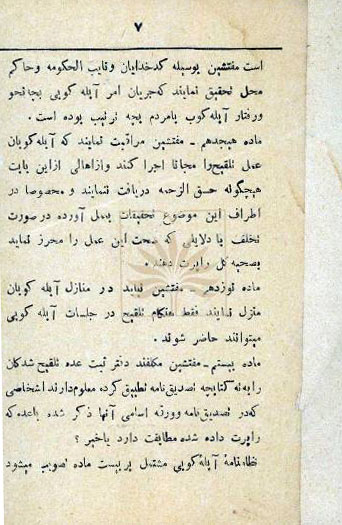 ۷
است مفتشین بوسیله کدخدایان و نایب الحکومه و حاکم
محل تحقیق نمایند که جریان امر آبله کوبی بچه نحو
و رفتار آبله کوب با مردم بچه ترتیب بوده است .
ماده هیجدهم ـ مفتشین مراقبت نمایند که آبله کوبان
عمل تلقیح را مجانا اجرا کنند و از اهالی از این بابت
هیچگونه حق الزحمه دریافت ننمایند و مخصوصا در
اطراف این موضوع تحقیقات بعمل آورده در صورت
تخلف با دلایلی که صحت این عمل را محرز نماید
بصحیه کل راپرت دهند .
ماده نوزدهم ـ مفتشین نباید در منازل آبله کوبان
منزل نمایند فقط هنگام تلقیح در جلسات آبله کوبی
میتوانند حاضر شوند .
ماده بیستم ـ مفتشین مکلفند دفتر ثبت عده تلقیح شدگان
را با ته کتابچه تصدیق نامه تطبیق کرده معلوم دارند اشخاصی
که در تصدیق نامه و ورقه اسامی آنها ذکر شده با عده که
راپرت داده شده مطابقت دارد یا خیر ؟
نظامنامهٔ آبله کوبی مشتمل بر بیست ماده تصویب میشود